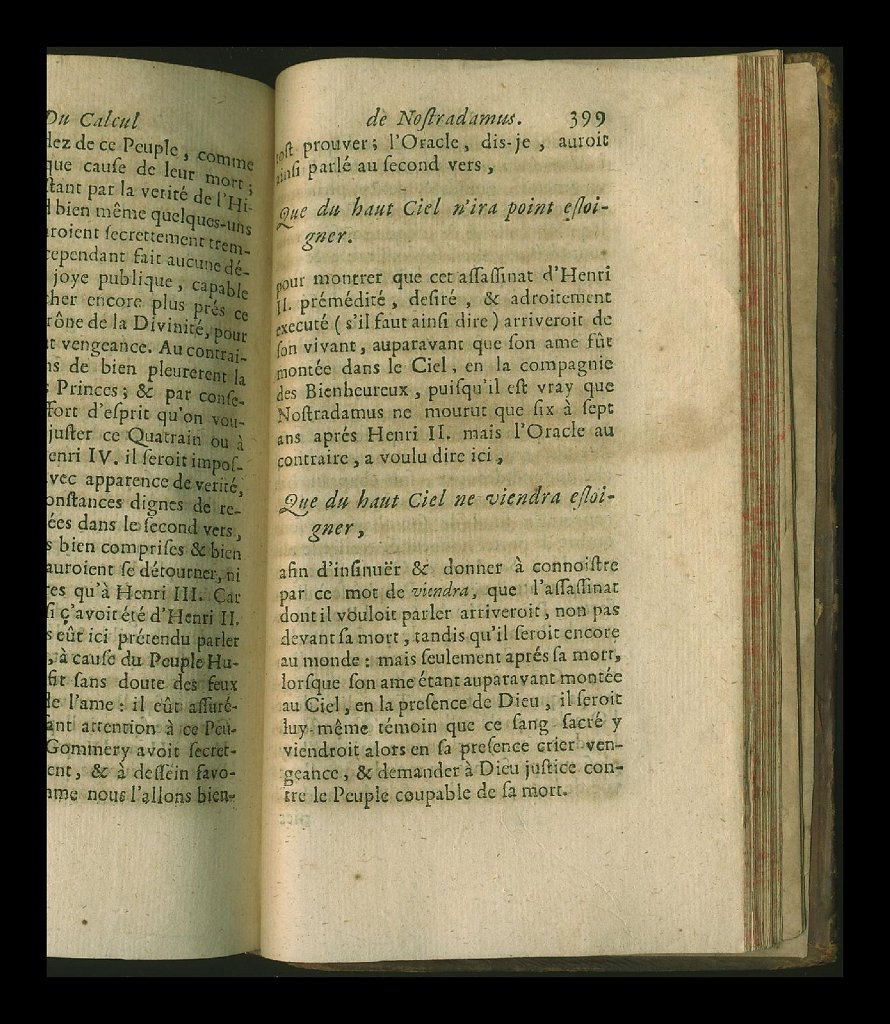 Du Calcul
lez de ce Peuple, comme
que cauſe de leur mort;
ſtant par la verité de l'Hi-
d bien même quelques-uns
roient ſecrettement trem-
cependant fait aucune dé-
joye publique, capable
cher encore plus prés ce
rône de la Divinité, pour
vengeance. Au contrai-
ns de bien pleurerent la
Princes; & par conſe-
fort d'eſprit qu'on vou-
juſter ce Quatrain ou à
enri IV. il ſeroit impoſ-
vec apparence de verité,
onſtances dignes de re-
ées dans le ſecond vers,
s bien compriſes & bien
auroient ſe détourner, ni
res qu'à Henri III. Car
ſi ç'avoit été d'Henri II.
s eût ici prétendu parler
, à cauſe du Peuple Hu-
fit ſans doute des feux
le l'ame : il eût aſſuré-
ant attention à ce Peu-
Gommery avoit ſecret-
ent, & à deſſein favo-
mme nous l'allons bien-
de Noſtradamus. 399
toſt prouver; l'Oracle, dis-je, auroit
ainſi parlé au ſecond vers,
Que du haut Ciel n'ira point eſloi-
gner.
pour montrer que cet aſſaſſinat d'Henri
II. prémédité, deſiré, & adroitement
executé ( s'il faut ainſi dire ) arriveroit de
ſon vivant, auparavant que ſon ame fût
montée dans le Ciel, en la compagnie
des Bienheureux, puiſqu'il eſt vray que
Noſtradamus ne mourut que ſix à ſept
ans aprés Henri II. mais l'Oracle au
contraire, a voulu dire ici,
Que du haut Ciel ne viendra eſloi-
gner,
afin d'inſinuër & donner à connoiſtre
par ce mot de viendra, que l'aſſaſſinat
dont il vouloit parler arriveroit, non pas
devant ſa mort, tandis qu'il ſeroit encore
au monde : mais ſeulement aprés ſa mort,
lorſque ſon ame étant auparavant montée
au Ciel, en la preſence de Dieu, il ſeroit
luy-même témoin que ce ſang ſacré y
viendroit alors en ſa preſence crier ven-
geance, & demander à Dieu juſtice con-
tre le Peuple coupable de ſa mort.